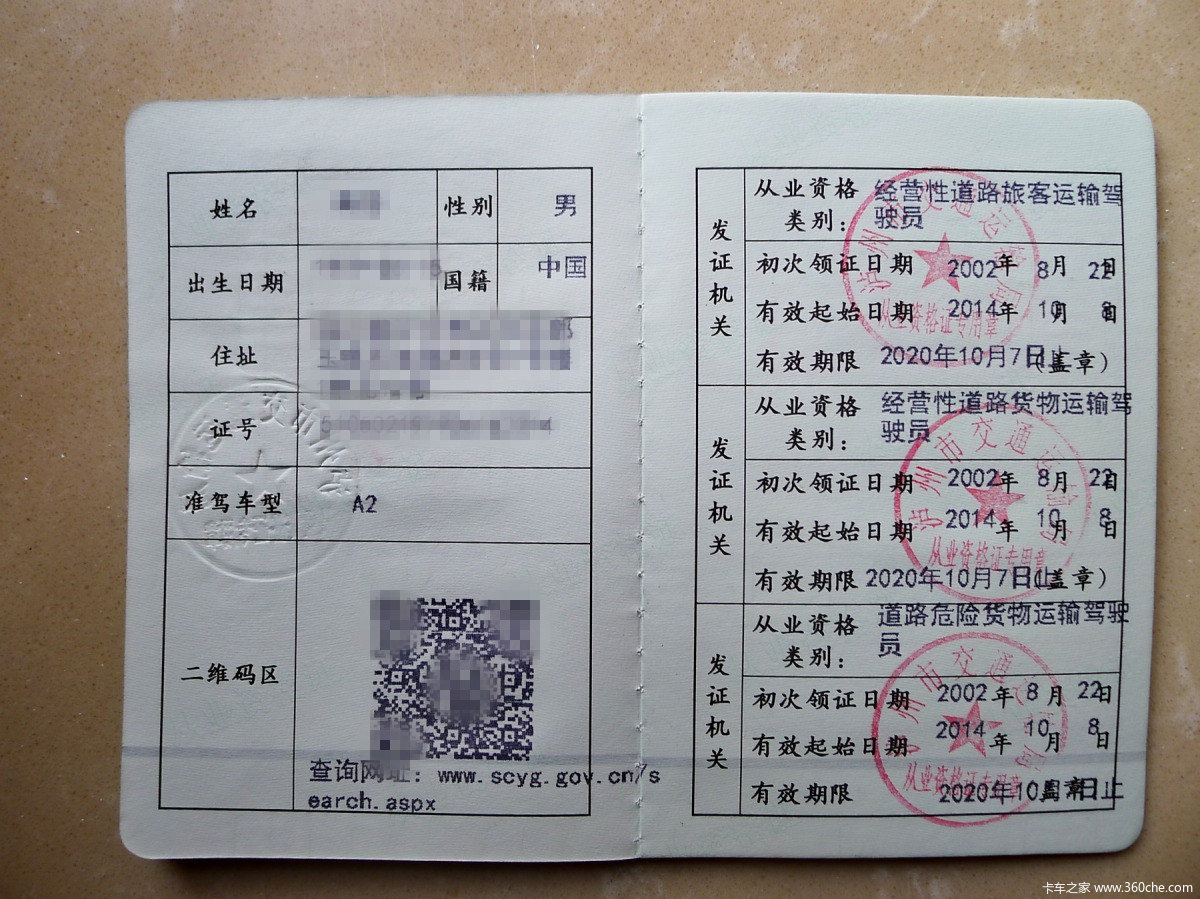 姓名 性别 男
出生日期 国籍 中国
住址
证号
准驾车型 A2
二维码区
查询网址：www.scyg.gov.cn/s
earch.aspx
发证机关
从业资格类别：
经营性道路旅客运输驾
驶员
初次领证日期 2002年 8月 22日
有效起始日期 2014年 10月 8日
有效期限 2020年10月7日止（盖章）
泸州市交通运输局
从业资格证专用章
发证机关
从业资格类别：
经营性道路货物运输驾
驶员
初次领证日期 2002年 8月 22日
有效起始日期 2014年 10月 8日
有效期限 2020年10月7日止（盖章）
泸州市交通运输局
从业资格证专用章
发证机关
从业资格类别：
道路危险货物运输驾驶
员
初次领证日期 2002年 8月 22日
有效起始日期 2014年 10月 8日
有效期限 2020年10月 日止
泸州市交通运输局
从业资格证专用章
卡车之家 www.360che.com